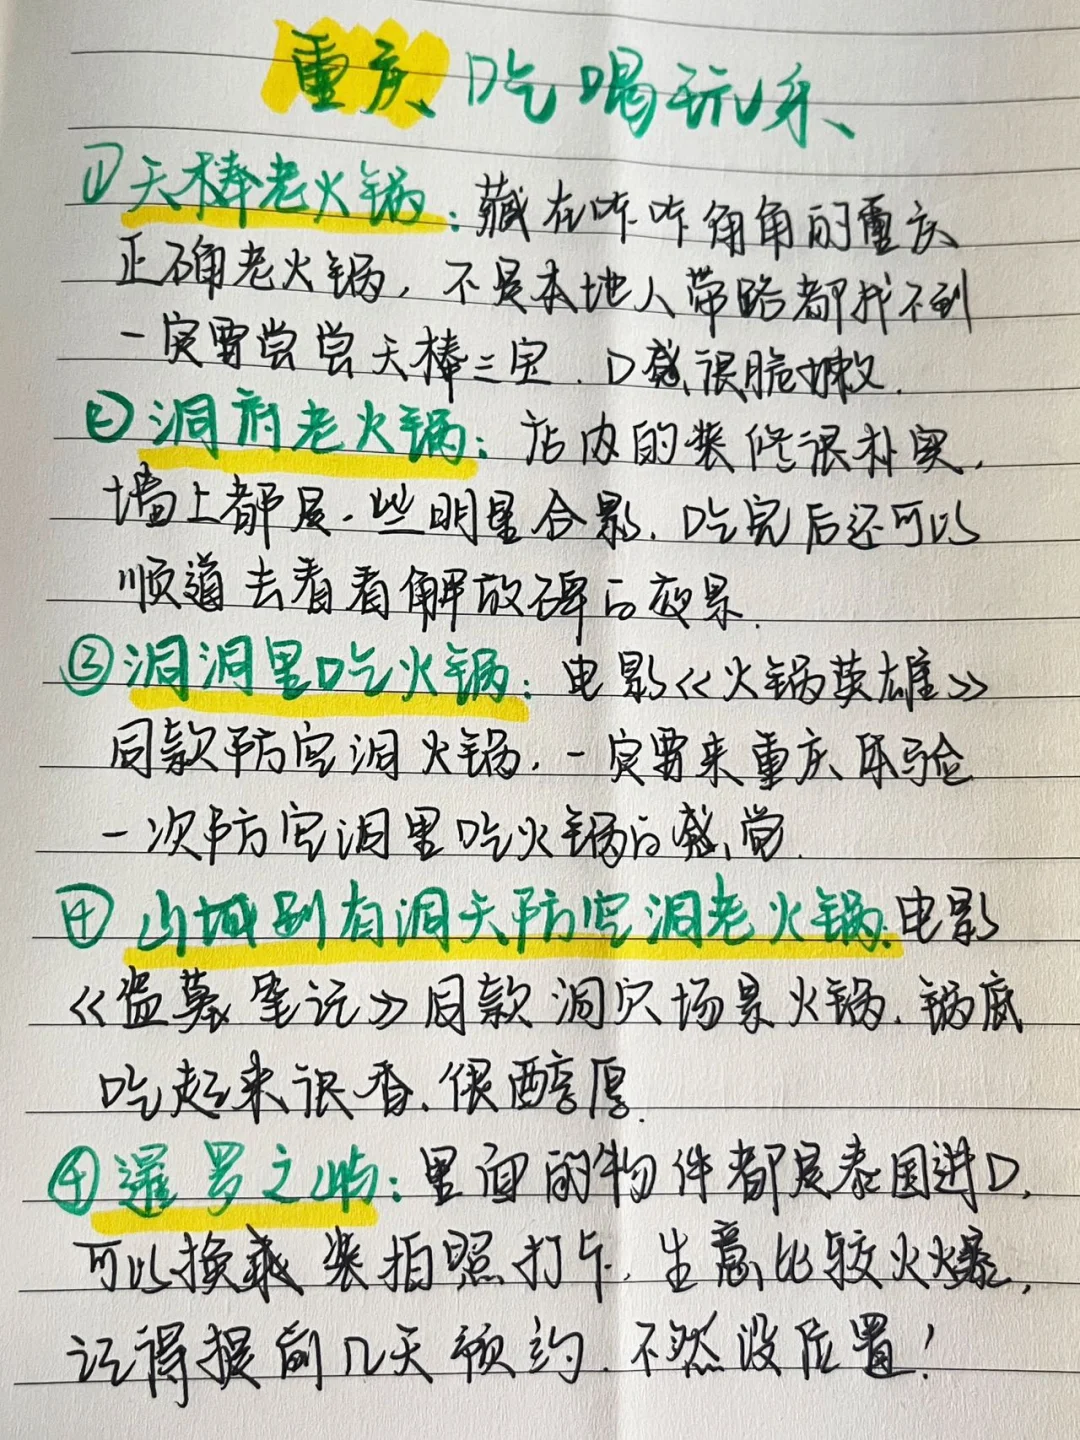 重庆吃喝玩乐
①天棒老火锅:藏在咔咔角角的重庆
正确老火锅,不是本地人带路都找不到
一定要尝尝天棒三宝.口感很脆嫩.
②洞府老火锅:店内的装修很朴实,
墙上都是一些明星合影.吃完后还可以
顺道去看看解放碑的夜景.
③洞洞里吃火锅:电影《火锅英雄》
同款防空洞火锅.一定要来重庆体验
一次防空洞里吃火锅的感觉.
④山城别有洞天防空洞老火锅:电影
《盗墓笔记》同款洞穴场景火锅.锅底
吃起来很香.很醇厚.
④暹罗之屿:里面的物件都是泰国进口,
可以换泰装拍照打卡,生意比较火爆,
记得提前几天预约.不然没位置!